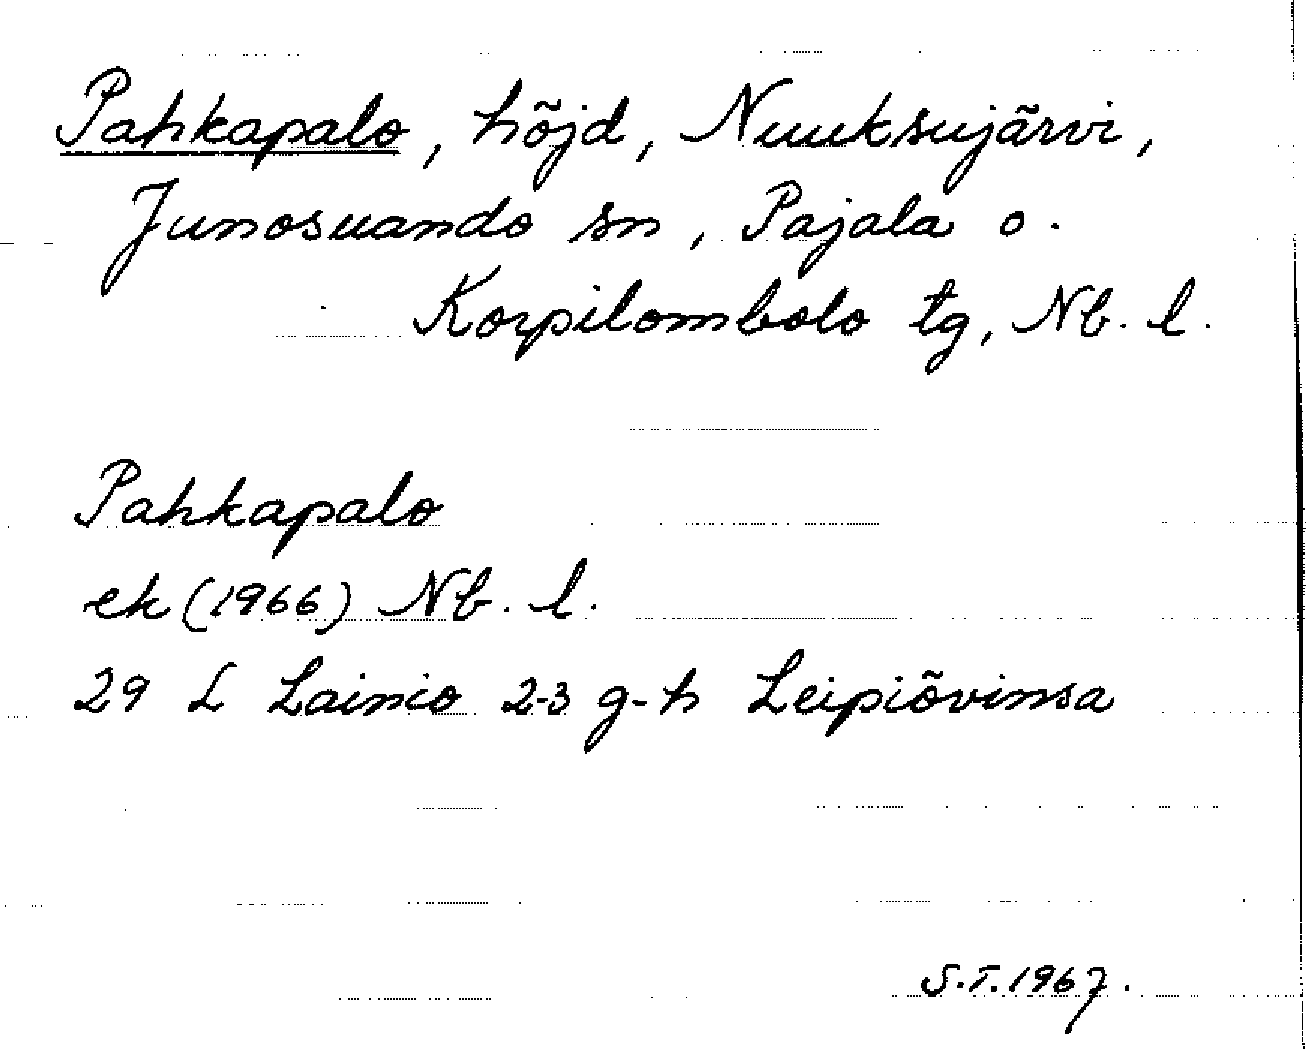 Pahkapalo, höjd, Nuuksujärvi,
Junosuando sn, Pajala o.
Korpilombolo tg, Nb. l.
Pahkapalo
ek (1966) Nb. l.
29 L Lainio 2-3 g-h Leipiövinsa
S.T. 1967.